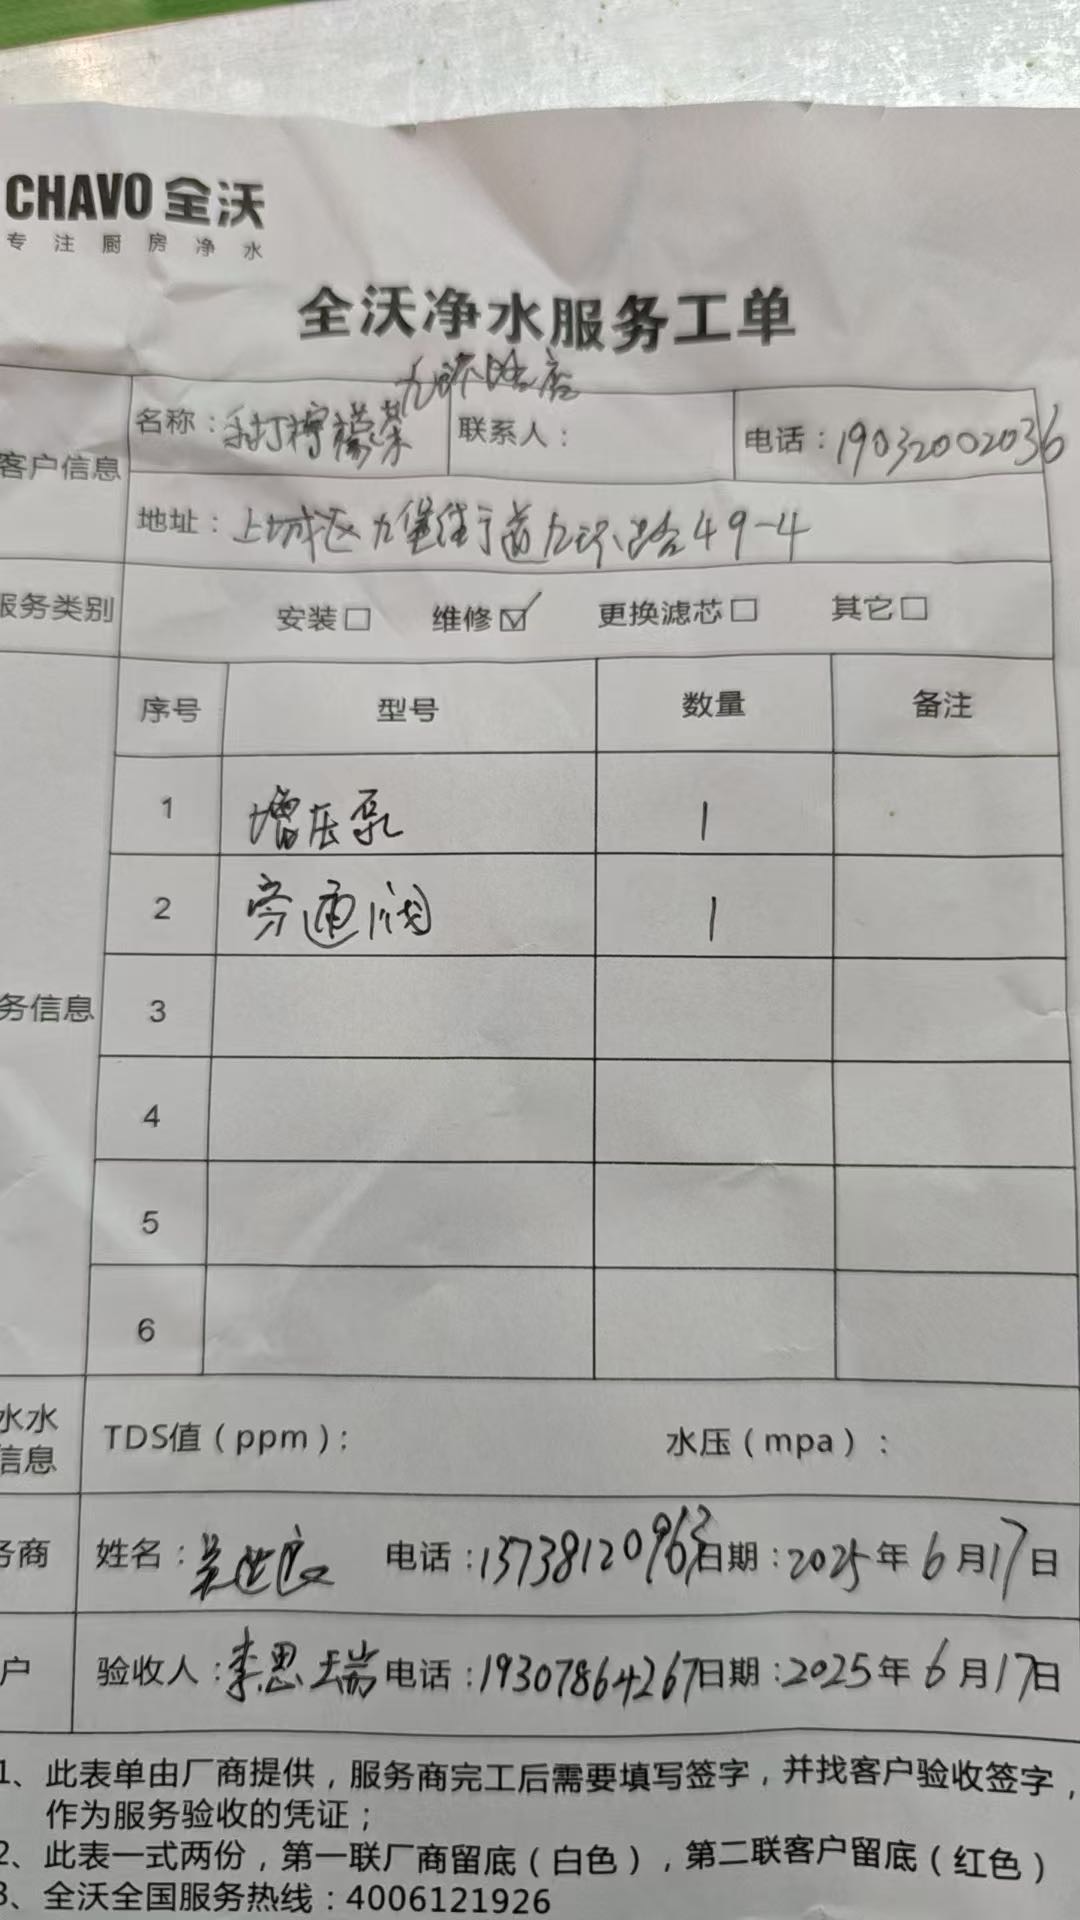 CHAVO 全沃
专注厨房净水
全沃净水服务工单
九环路店
客户信息 名称：手打柠檬茶 联系人： 电话：19032002036
地址：上城区九堡街道九环路49-4
服务类别 安装□ 维修☑ 更换滤芯□ 其它□
序号 型号 数量 备注
1 增压泵 1
2 旁通阀 1
务信息 3
4
5
6
水水
信息
TDS值（ppm）： 水压（mpa）：
务商 姓名：吴 电话：13738120963 日期：2025年6月17日
户 验收人：李思瑞 电话：19307864267 日期：2025年6月17日
1、此表单由厂商提供，服务商完工后需要填写签字，并找客户验收签字，
作为服务验收的凭证；
2、此表一式两份，第一联厂商留底（白色），第二联客户留底（红色）
3、全沃全国服务热线：4006121926